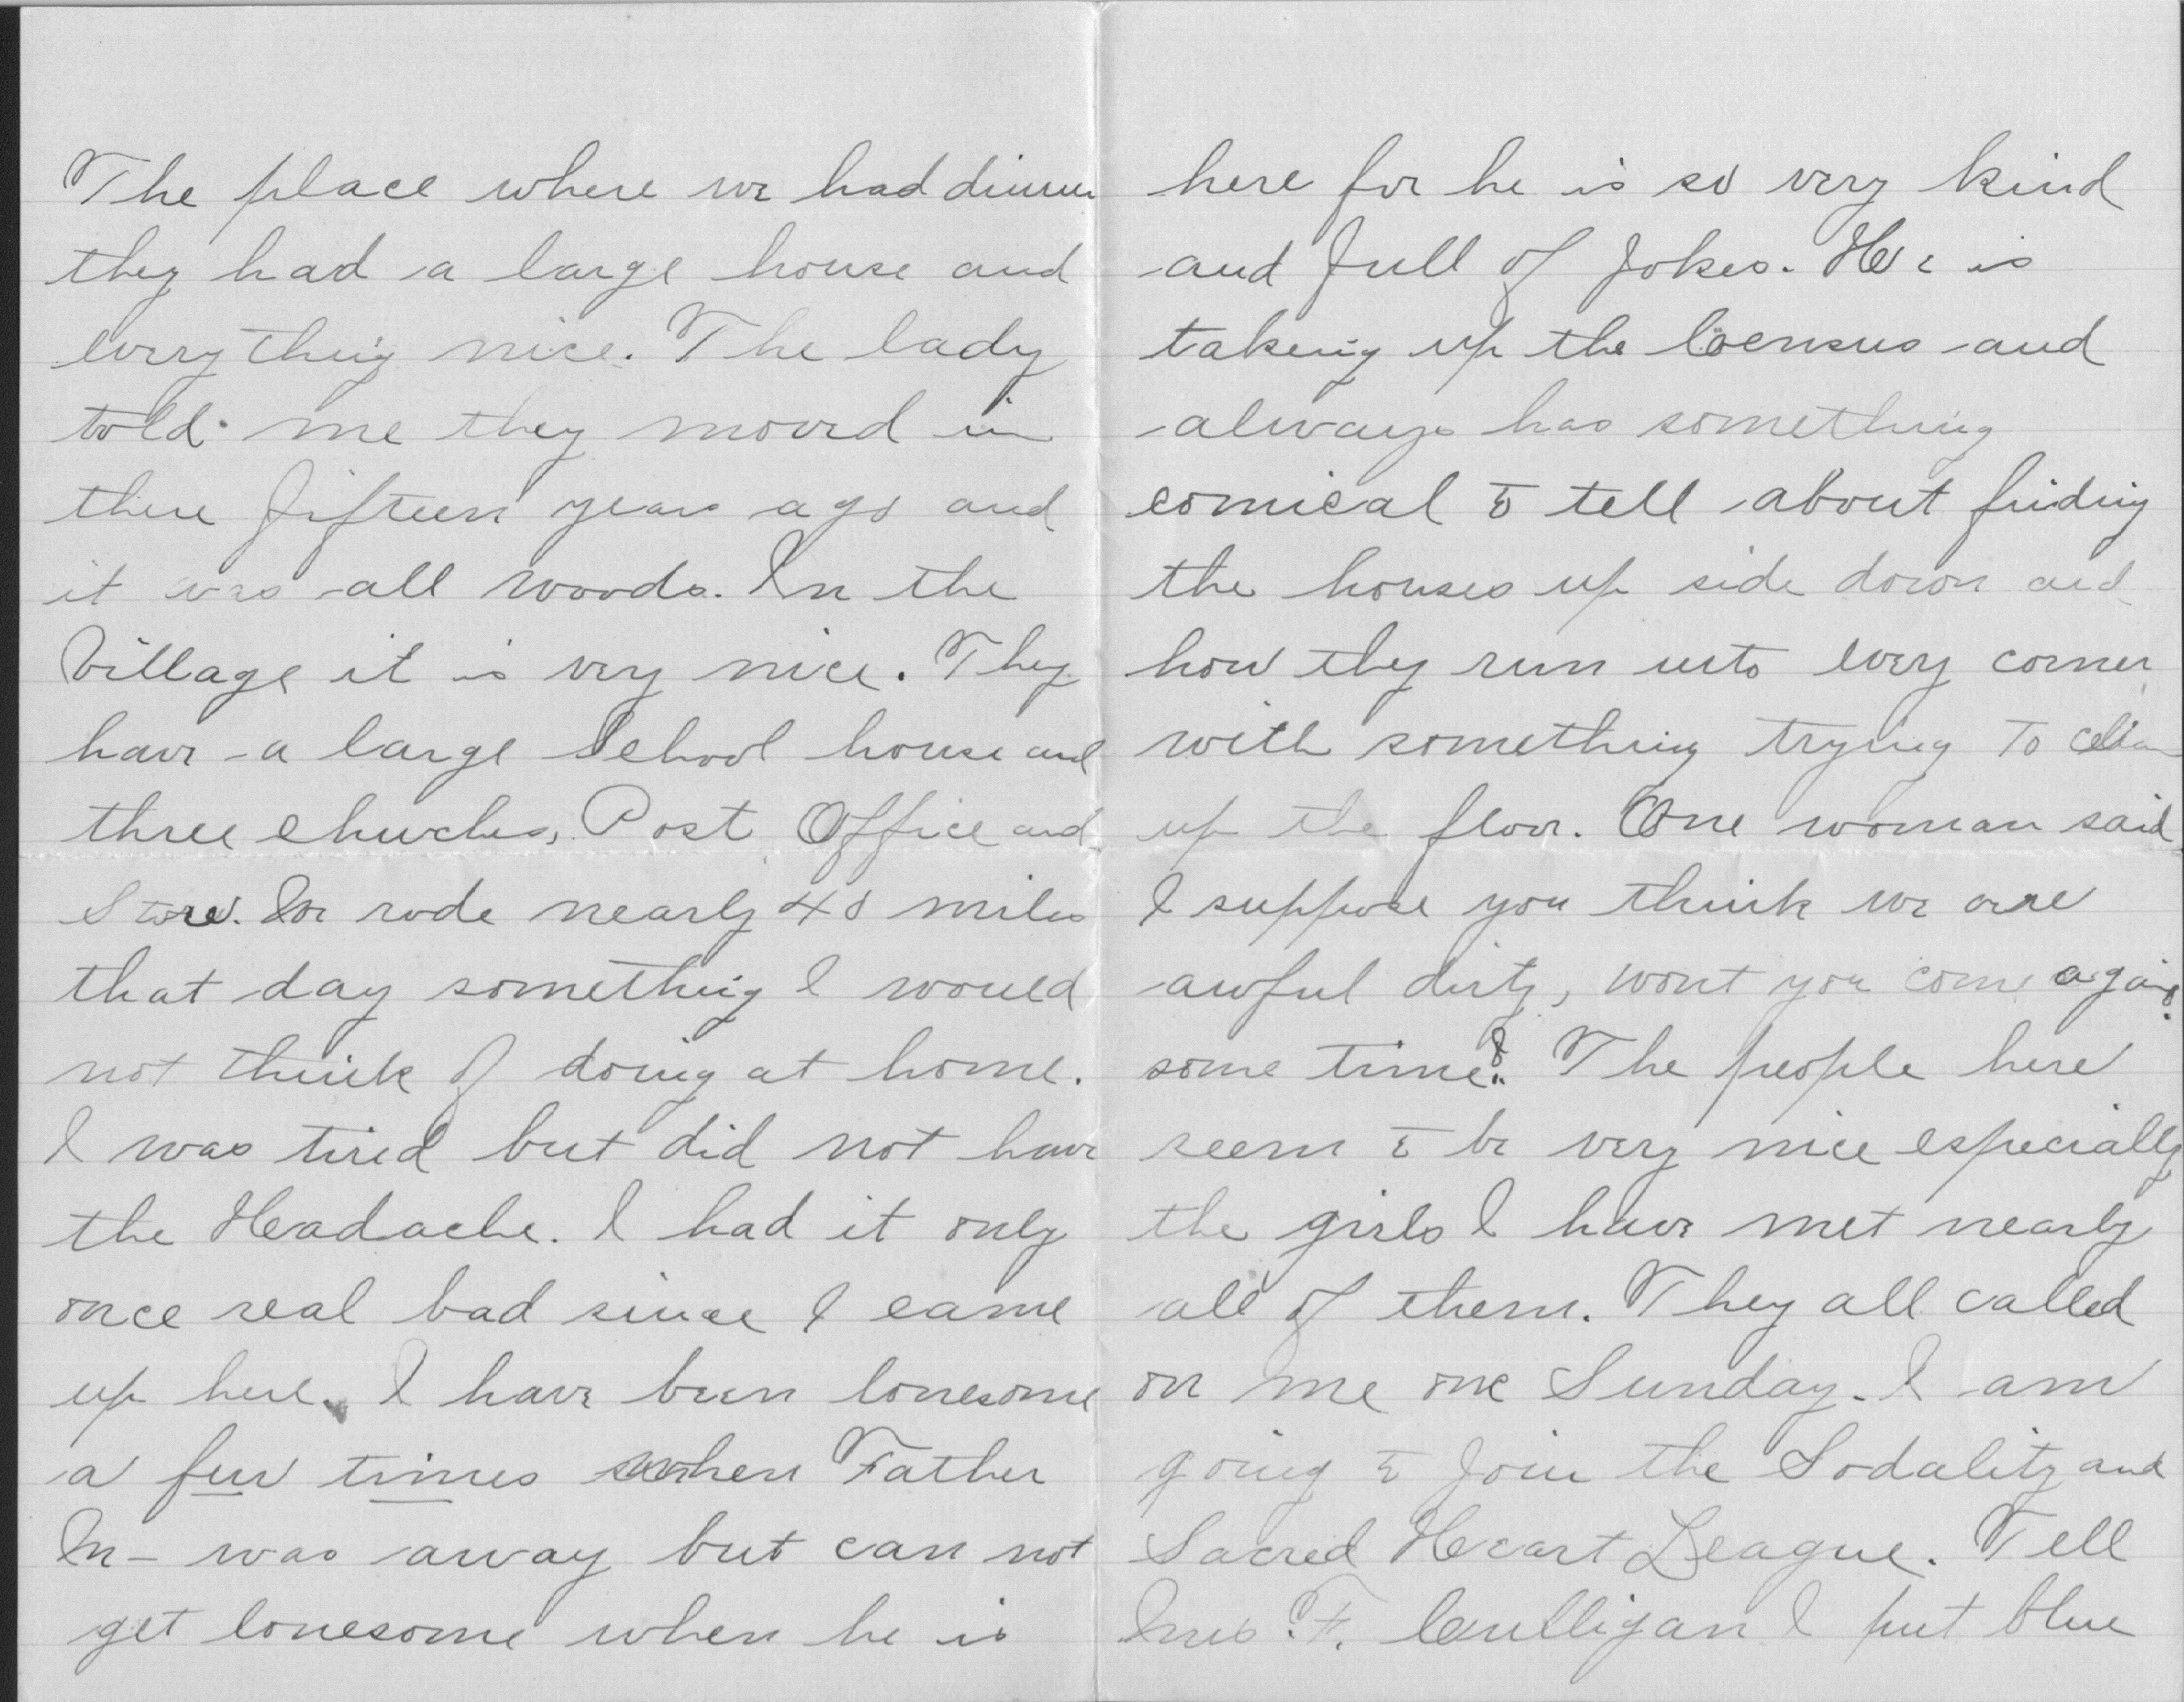 The place where we had dinner
they had a large house and
everything nice. The lady
told me they moved in
there fifteen years ago and
it was all woods. In the
Village it is very nice. They
have a large School house and
three churches, Post Office and
Store. We rode nearly 40 miles
that day something I would
not think of doing at home.
I was tired but did not have
the Headache. I had it only
once real bad since I came
up here. I have been lonesome
a few times when Father
M- was away but can not
get lonesome when he is
here for he is so very kind
and full of Jokes. He is
takeing up the Census and
always has something
comical to tell about finding
the houses up side down and
how they run into every corner
with something trying to clean
up the floor. One woman said
I suppose you think we are
awful dirty, wont you come again
some time? The people here
seem to be very nice especially
the girls I have met nearly
all of them. They all called
on me one Sunday. I am
going to Join the Sodality and
Sacred Heart League. Tell
Mrs. F. Culligan I put blue